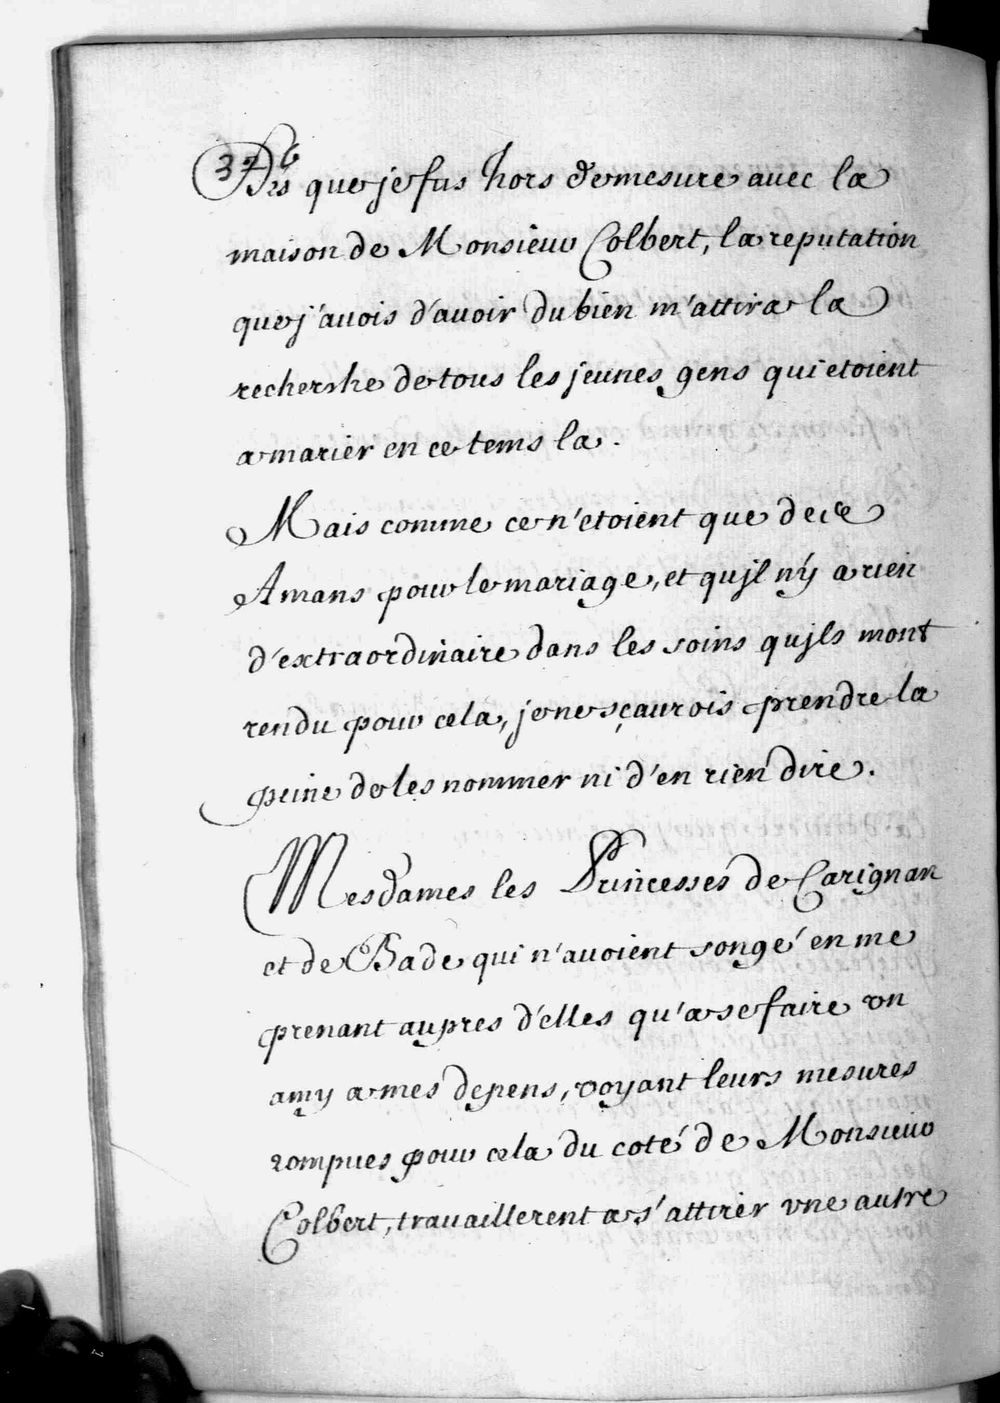 326
Dés que je fus hors de mesure avec la
maison de Monsieur Colbert, la reputation
que j'avois d'avoir du bien m'attira la
recherche de tous les jeunes gens qui etoient
a marier en ce tems la.
Mais comme ce n'etoient que de ce
Amans pour le mariage, et qujl n'y a rien
d'extraordinaire dans les soins qujls mont
rendu pour cela, je ne sçaurois prendre la
peine de les nommer ni d'en rien dire.
Mesdames les Princesses de Carignan
et de Bade qui n'avoient songé en me
prenant aupres d'elles qu'a se faire vn
amy a mes depens, voyant leurs mesures
rompues pour cela du coté de Monsieur
Colbert, travaillerent a s'attirer vne autre